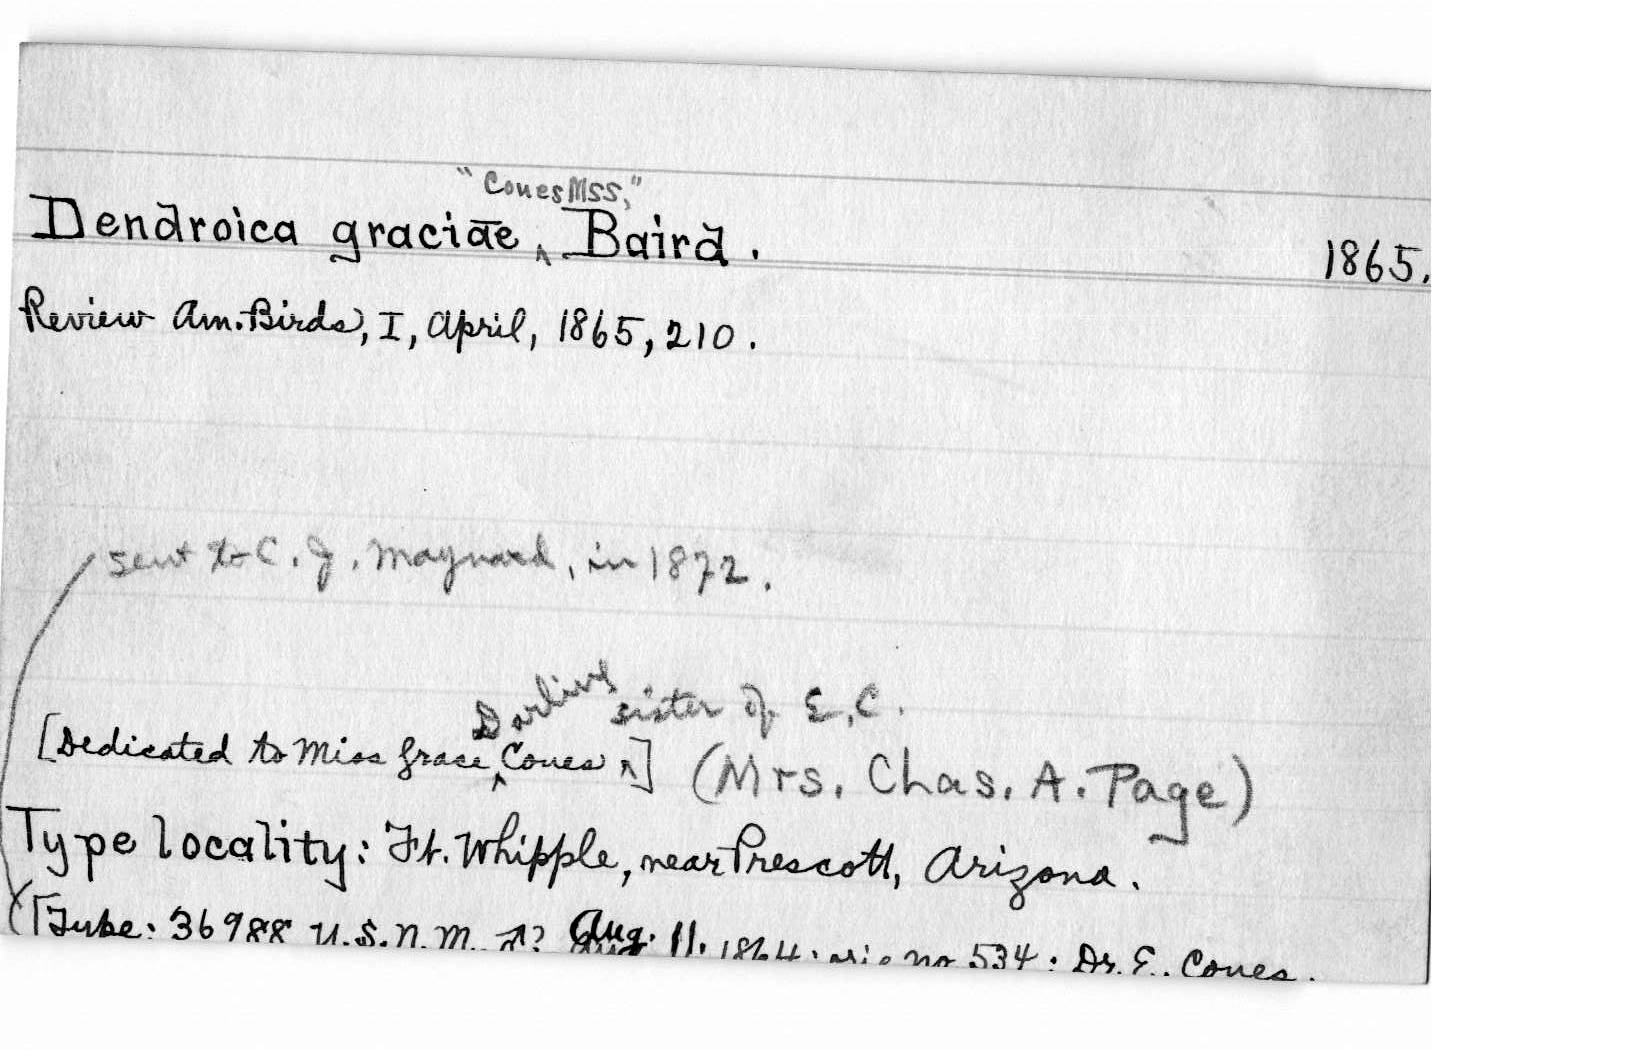 "Coues Mss,"
Dendroica graciae ‸ Baird. 1865.
Review Am. Birds, I, April, 1865, 210.
sent to C. J. Maynard, in 1872.
Darling sister of E. C.
[Dedicated to Miss Grace ‸ Coues ‸] (Mrs. Chas. A. Page)
Type locality: Ft. Whipple, near Prescott, Arizona.
([Type: 36988 U.S.N.M. ♂? Aug. 11, 1864; orig no 534; Dr. E. Coues.